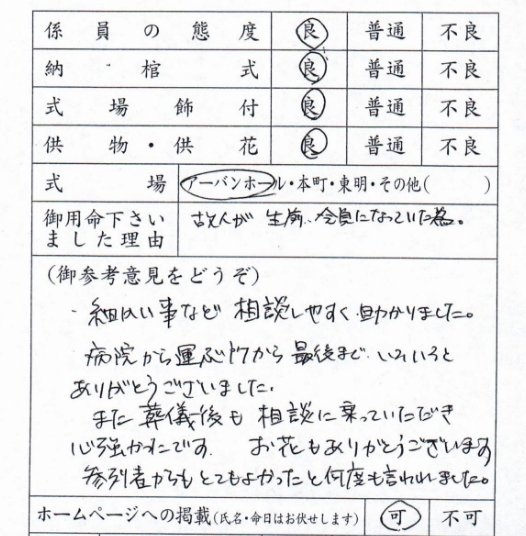 係員の態度 良 普通 不良
納・棺式 良 普通 不良
式場飾付 良 普通 不良
供物・供花 良 普通 不良
式場 アーバンホール・本町・東明・その他( )
御用命下さい
ました理由
故人が生前、会員になっていた為。
(御参考意見をどうぞ)
・細かい事など相談しやすく助かりました。
病院から運ぶ時から最後まで、いろいろと
ありがとうございました。
また葬儀後も相談に乗っていただき
心強かったです。 お花もありがとうございます
参列者からもとてもよかったと何度も言われました。
ホームページへの掲載(氏名・命日はお伏せします) 可 不可